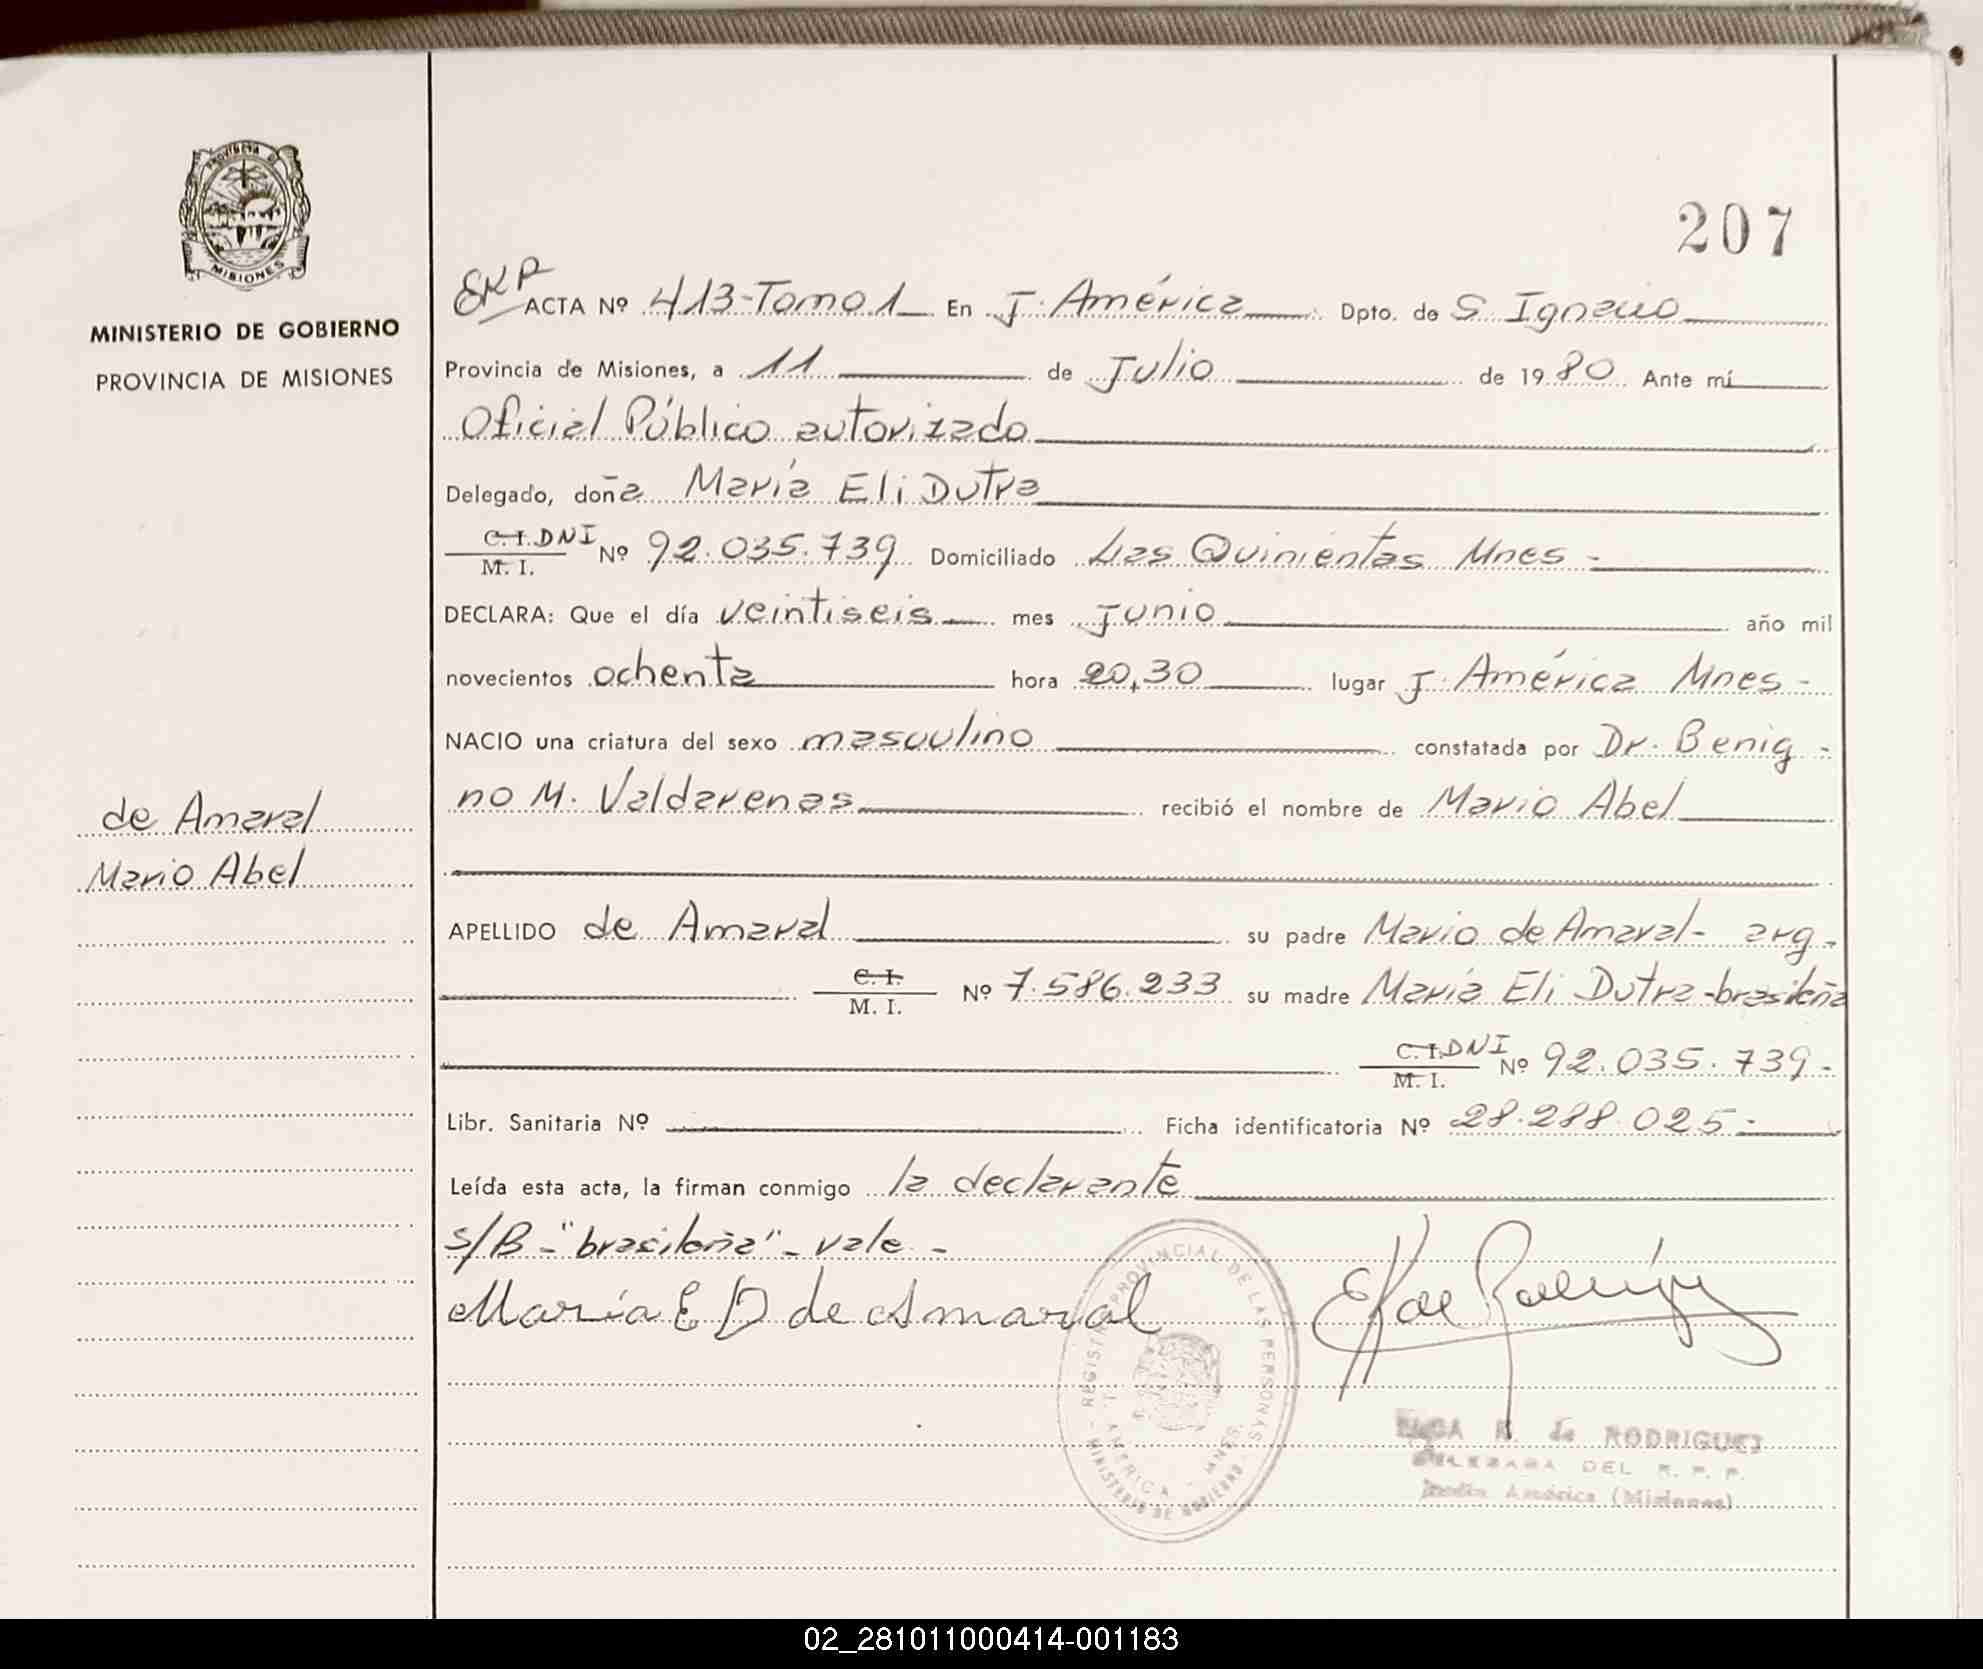 PROVINCIA DE
MISIONES
MINISTERIO DE GOBIERNO
PROVINCIA DE MISIONES
de Amaral
Mario Abel
207
EKR
ACTA Nº 413-Tomo 1 En J. América Dpto. de S. Ignacio
Provincia de Misiones, a 11 de Julio de 1980 Ante mí
Oficial Público autorizado
Delegado, doña María Eli Dutra
C.I. DNI
M. I. Nº 92.035.739 Domiciliado Las Quinientas Mnes -
DECLARA: Que el día veintiseis mes junio año mil
novecientos ochenta hora 20,30 lugar J. América Mnes -
NACIO una criatura del sexo masculino constatada por Dr. Benig -
no M. Valdarenas recibió el nombre de Mario Abel
APELLIDO de Amaral su padre Mario de Amaral - arg -
C. I.
M. I. Nº 7.586.233 su madre María Eli Dutra - brasileña
C. I. DNI
M. I. Nº 92.035.739 -
Libr. Sanitaria Nº Ficha identificatoria Nº 28.288.025 -
Leída esta acta, la firman conmigo la declarante
S/B - "brasileña" - vale -
María E D de Amaral EK de Rodríguez
REGISTRO PROVINCIAL DE LAS PERSONAS
J. AMERICA - MNES.
MINISTERIO DE GOBIERNO
K. de RODRIGUEZ
DELEGADA DEL R. P. P.
Jardín América (Misiones)
02_281011000414-001183